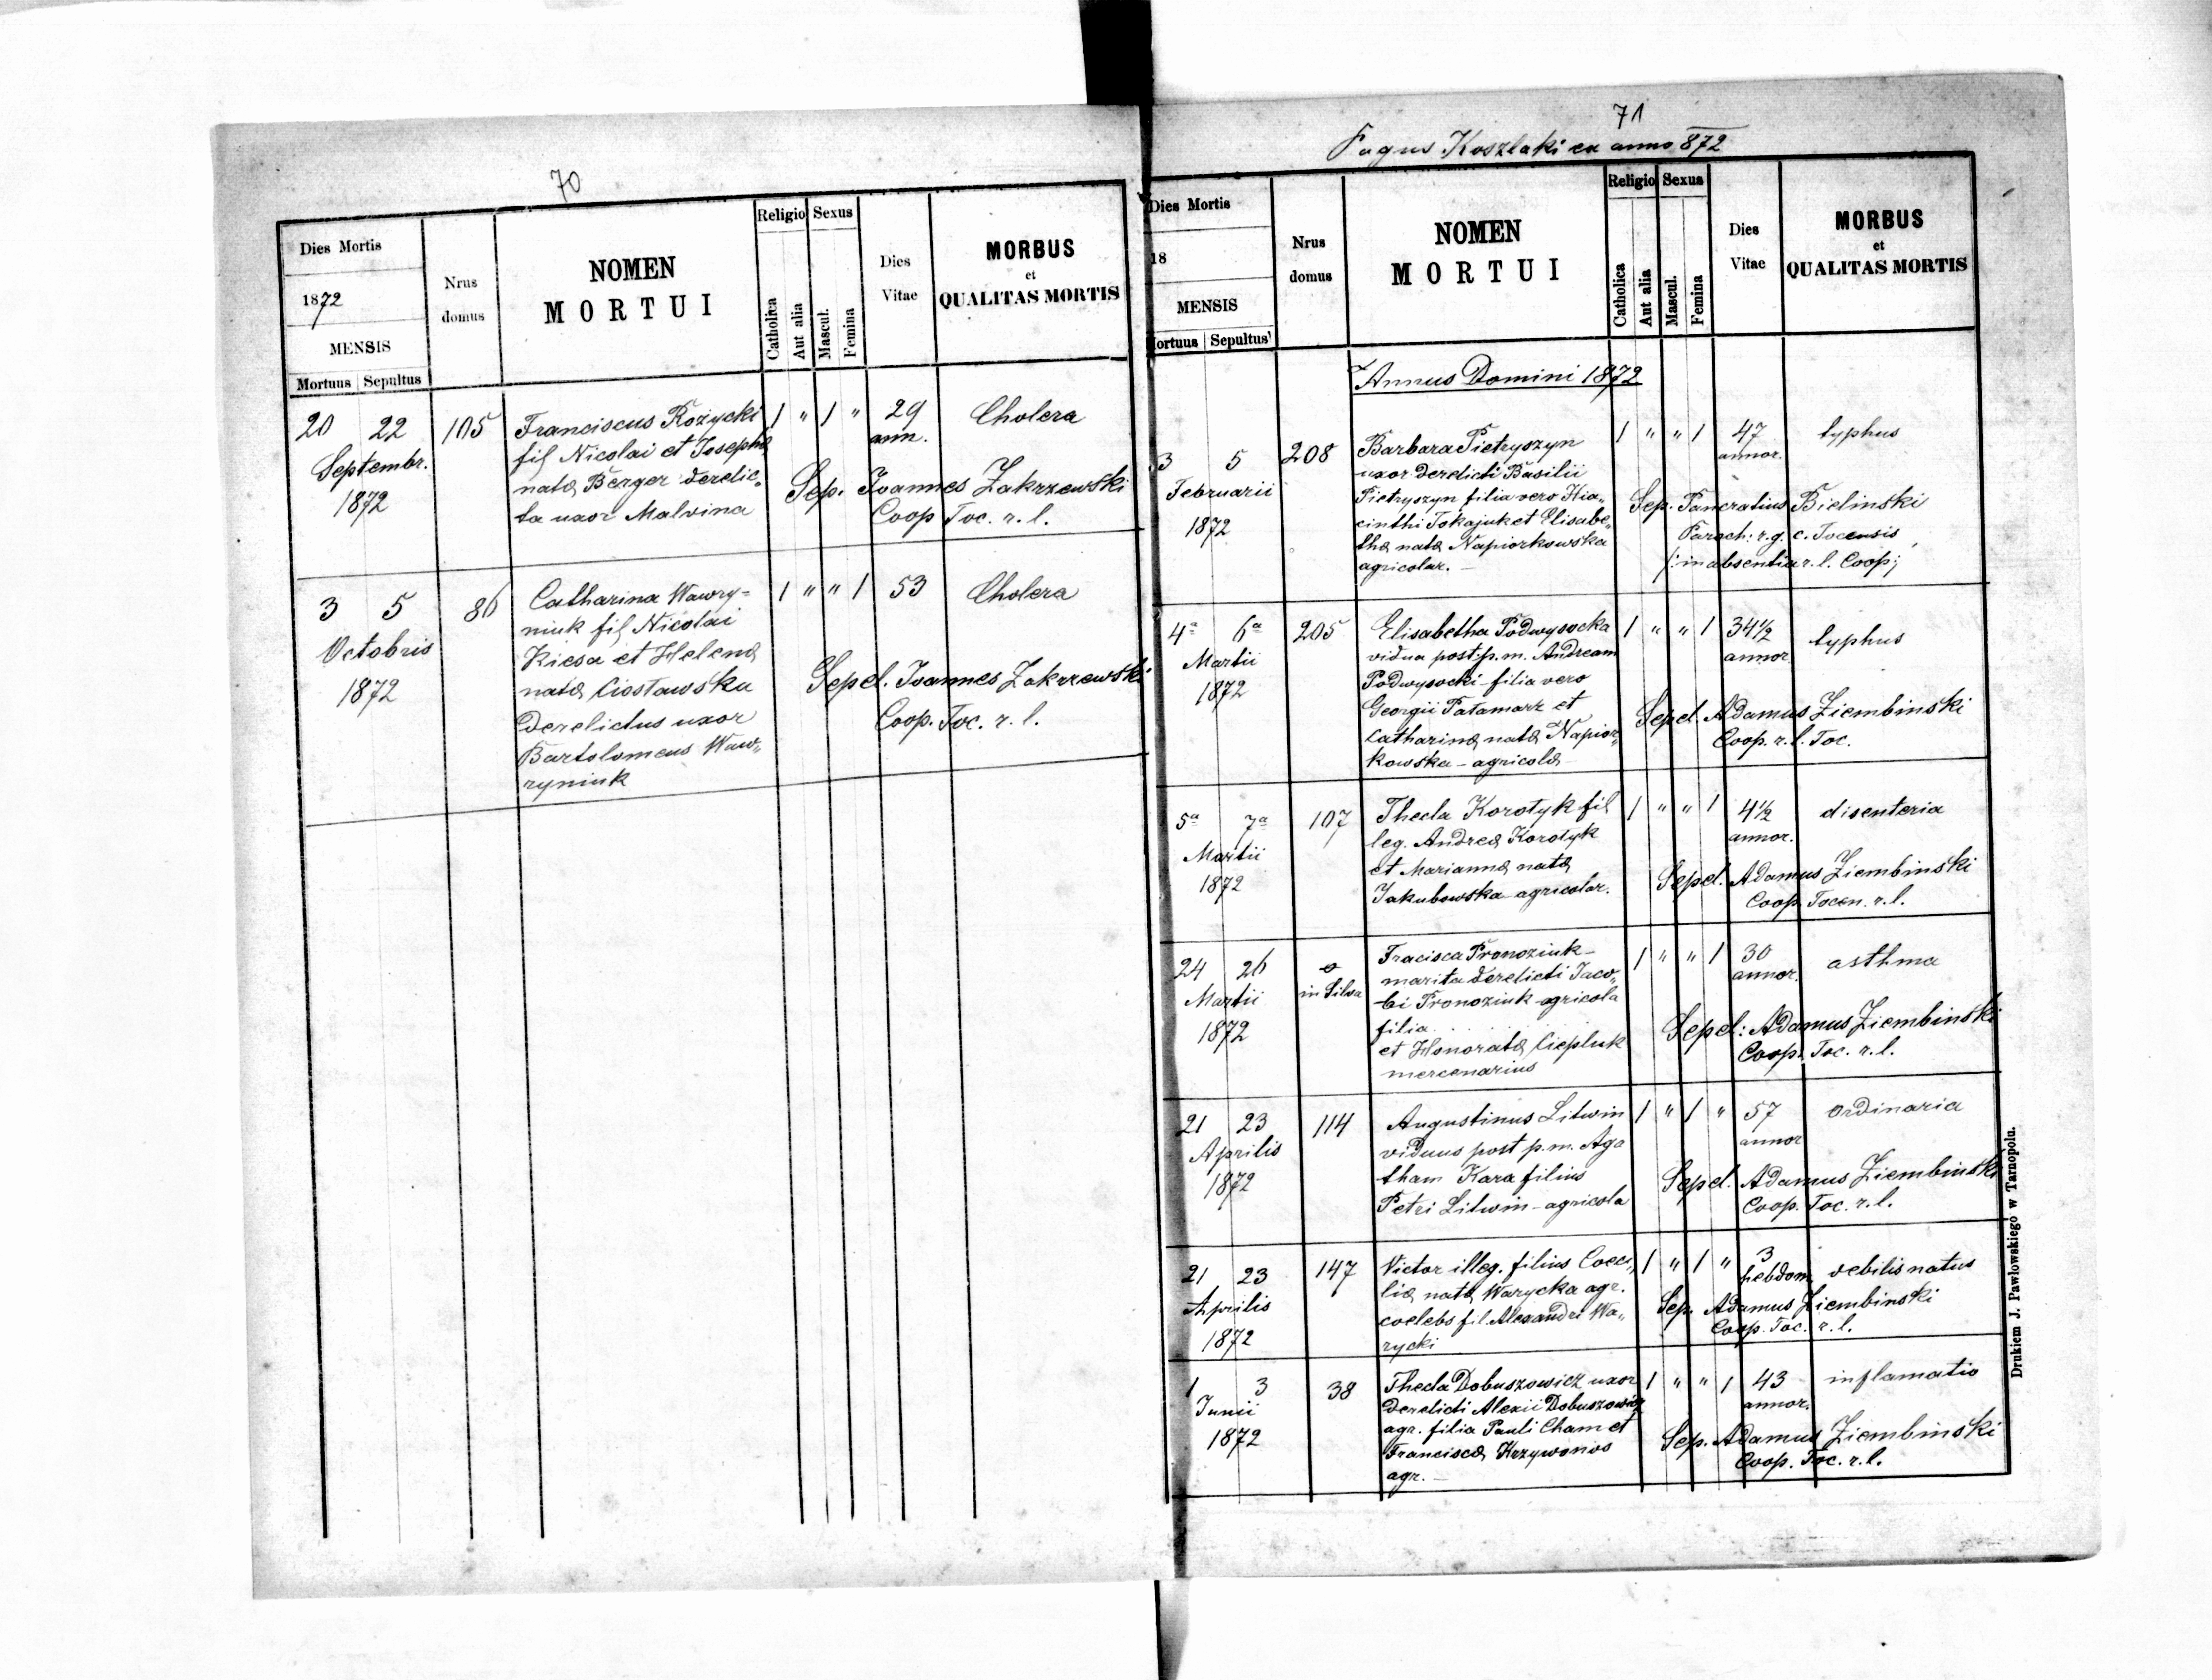 70
Dies Mortis
1872
MENSIS
Mortuus Sepultus
Nrus domus
NOMEN
MORTUI
Religio Sexus
Catholica
Aut alia
Mascul.
Femina
Dies
Vitae
MORBUS
et
QUALITAS MORTIS
20 22 105 Franciscus Rożycki 1 " 1 " 29 Cholera
Septembr. fil Nicolai et Josepha ann.
1872 nata Berger derelic„ Sep. Joannes Zakrzewski
ta uxor Malvina Coop Toc. r. l.
3 5 86 Catharina Wawry= 1 " " 1 53 Cholera
niuk fil Nicolai
Octobris Kiesa et Helena
1872 nata Ciostawska Sepel. Joannes Zakrzewski
derelictus uxor Coop. Toc. r. l.
Bartolomeus Waw„
ryniuk
71
Pagus Koszlaki ex anno 872
Dies Mortis
18
MENSIS
ortuus Sepultus
Nrus
domus
NOMEN
MORTUI
Religio Sexus
Catholica
Aut alia
Mascul.
Femina
Dies
Vitae
MORBUS
et
QUALITAS MORTIS
Annus Domini 1872
3 5 208 Barbara Pietryszyn 1 " " 1 47 typhus
uxor derelicti Basilii annor.
Februarii Pietryszyn filia vero Hia„ Sep. Pancratius Bielinski
1872 cinthi Tokajuk et Elisabe„ Paroch: r. g. c. Tocensis
tha nata Napiorkowska /: in absentia r. l. Coop;
agricolar. –
4a 6a 205 Elisabetha Podwysocka 1 " " 1 34½ typhus
Martii vidua post p. m. Andream annor.
1872 Podwysocki – filia vero
Georgii Patamarz et Sepel. Adamus Ziembinski
Catharina nata Napior„ Coop. r. l. Toc.
kowska – agricola
5a 7a 107 Thecla Korotyk fil 1 " " 1 4½ disenteria
Martii leg. Andrea Korotyk annor.
1872 et Marianna nata Sepel. Adamus Ziembinski
Jakubowska agricolar. Coop. Tocen. r. l.
24 26 o Fracisca Pronoziuk – 1 " " 1 30 asthma
Martii in Silva marita derelicti Jaco„ annor.
1872 bi Pronoziuk agricola
filia . . . . . Sepel: Adamus Ziembinski
et Honorata Ciepluk Coop. Toc. r. l.
mercenarius
21 23 114 Augustinus Litwin 1 " 1 " 57 ordinaria
Aprilis viduus post p. m. Aga annor
1872 tham Kara filius Sepel. Adamus Ziembinski
Petri Litwin – agricola Coop. Toc. r. l.
21 23 147 Victor illeg. filius Coeci„ 1 " 1 " 3 hebdom. debilis natus
Aprilis lia nata Warycka agr. Sep. Adamus Ziembinski
1872 coelebs fil. Alexandri Wa„ Coop. Toc. r. l.
rycki
1 3 38 Thecla Dobuszowicz uxor 1 " " 1 43 inflamatio
Junii derelicti Alexii Dobuszowicz annor.
1872 agr. filia Pauli Cham et Sep. Adamus Ziembinski
Francisca Krzywonos Coop. Toc. r. l.
agr. –
Drukiem J. Pawłowskiego w Tarnopolu.